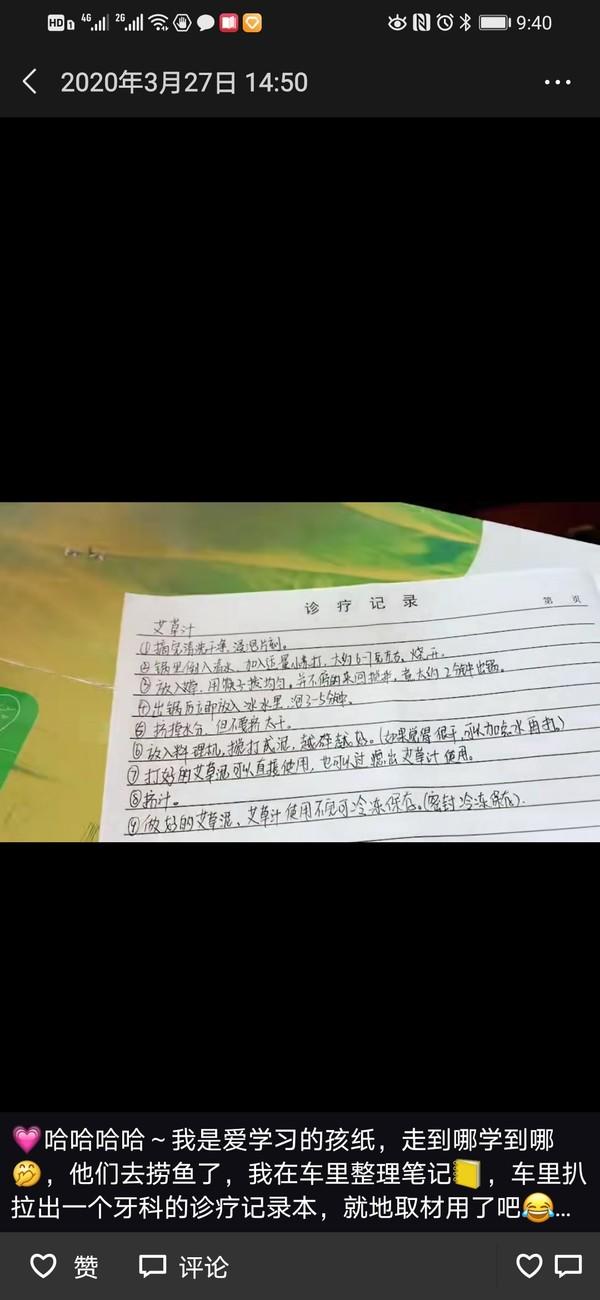 HD 4G 2G 9:40
2020年3月27日 14:50
诊疗记录
第 页
艾草汁
①摘完清洗干净,浸泡片刻。
②锅里倒入清水,加入适量小苏打,大约6-7克左右,烧开。
③放入艾草,用筷子拨均匀,并不停的来回搅拌,煮大约2分钟出锅。
④出锅后立即放入冰水里,泡3-5分钟。
⑤挤掉水分,但不要挤太干。
⑥放入料理机,搅打成泥,越碎越好。(如果觉得很干,可以加点水再打)
⑦打好的艾草泥可以直接使用,也可以过滤出艾草汁使用。
⑧挤汁。
⑨做好的艾草泥、艾草汁使用不完可冷冻保存。(密封冷冻保存).
💗哈哈哈哈~我是爱学习的孩纸,走到哪学到哪
🤭,他们去捞鱼了,我在车里整理笔记📒,车里扒
拉出一个牙科的诊疗记录本,就地取材用了吧😂...
赞 评论